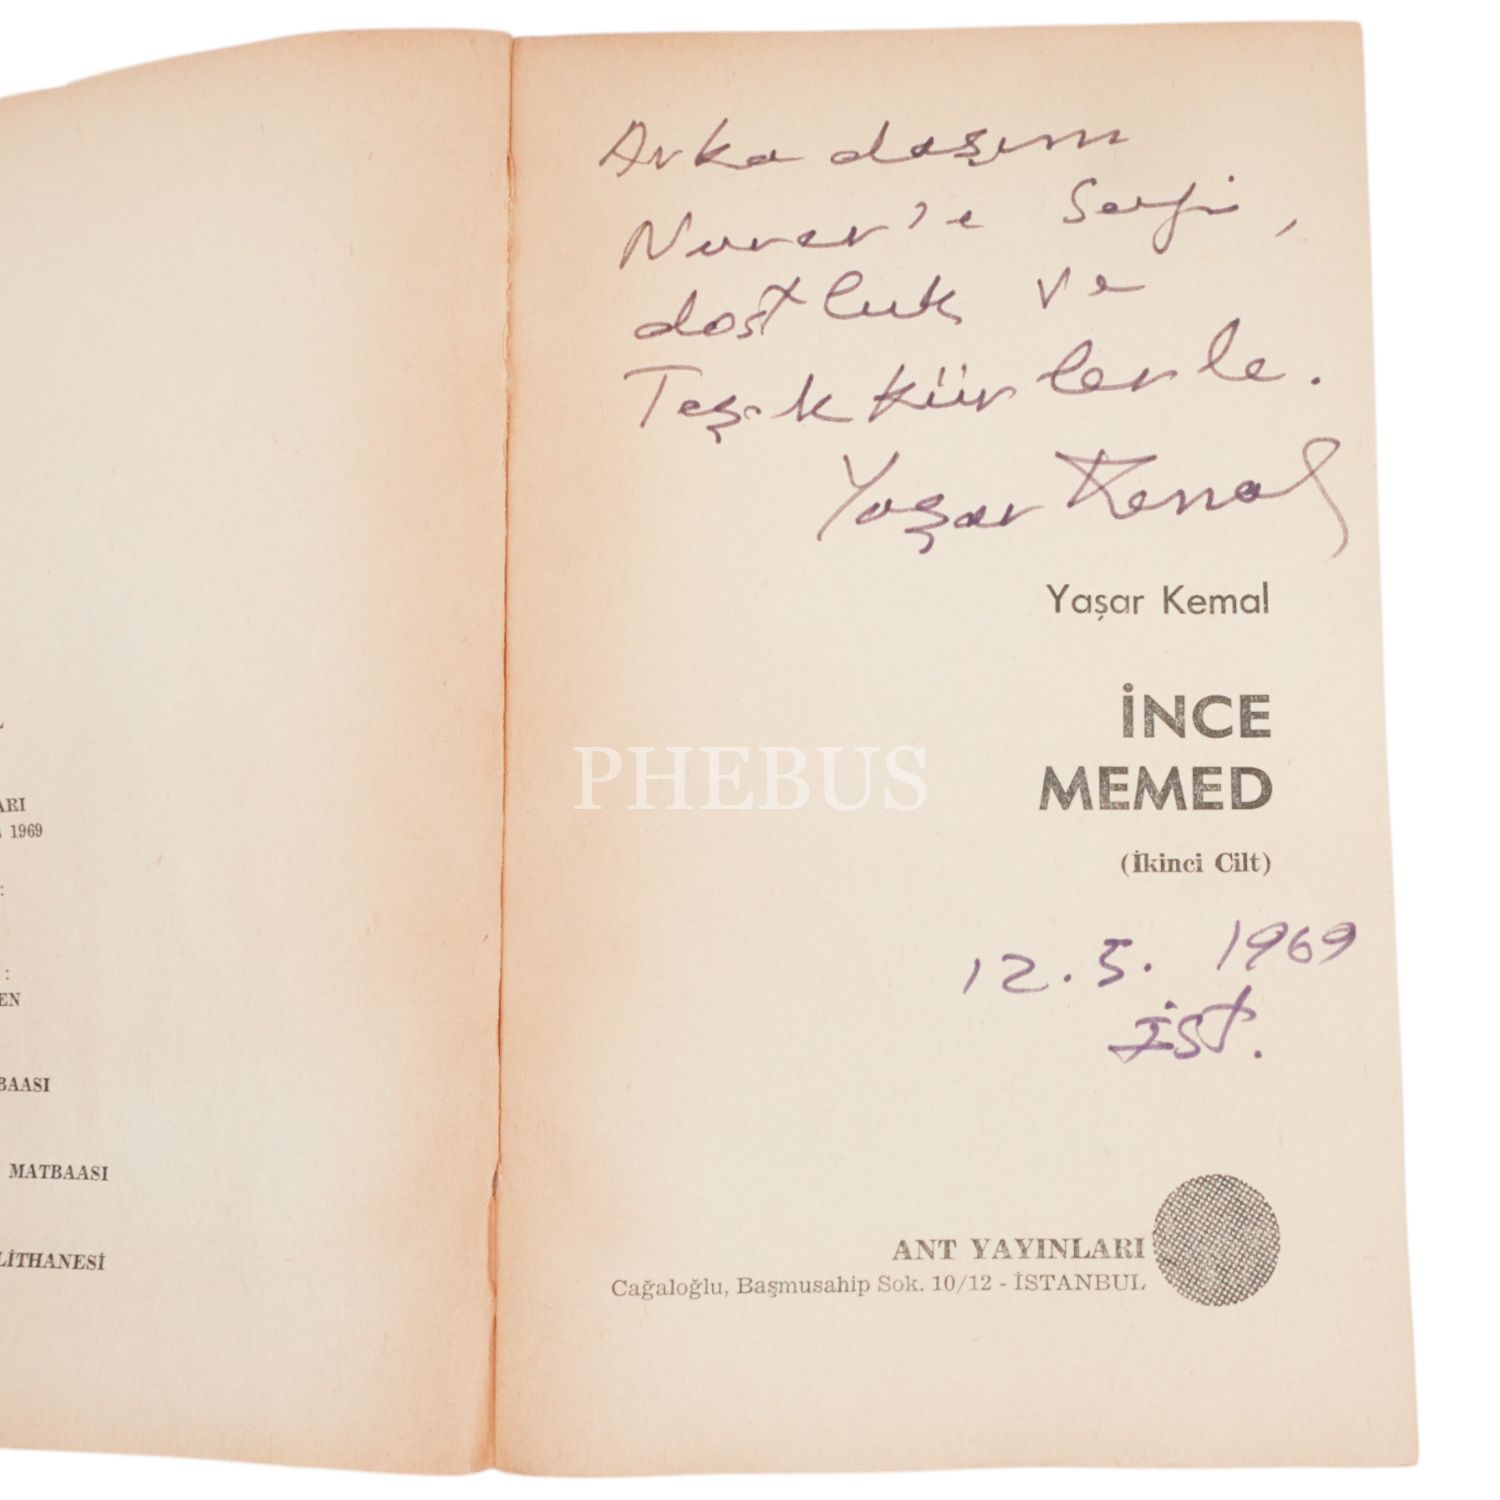 ARI
1969
:
:
EN
BAASI
MATBAASI
LİTHANESİ
Arkadaşım
Nurer'e Sevgi,
dostluk ve
Teşekkürlerle.
Yaşar Kemal
Yaşar Kemal
İNCE
MEMED
(İkinci Cilt)
PHEBUS
12.5.1969
İST.
ANT YAYINLARI
Cağaloğlu, Başmusahip Sok. 10/12 - İSTANBUL